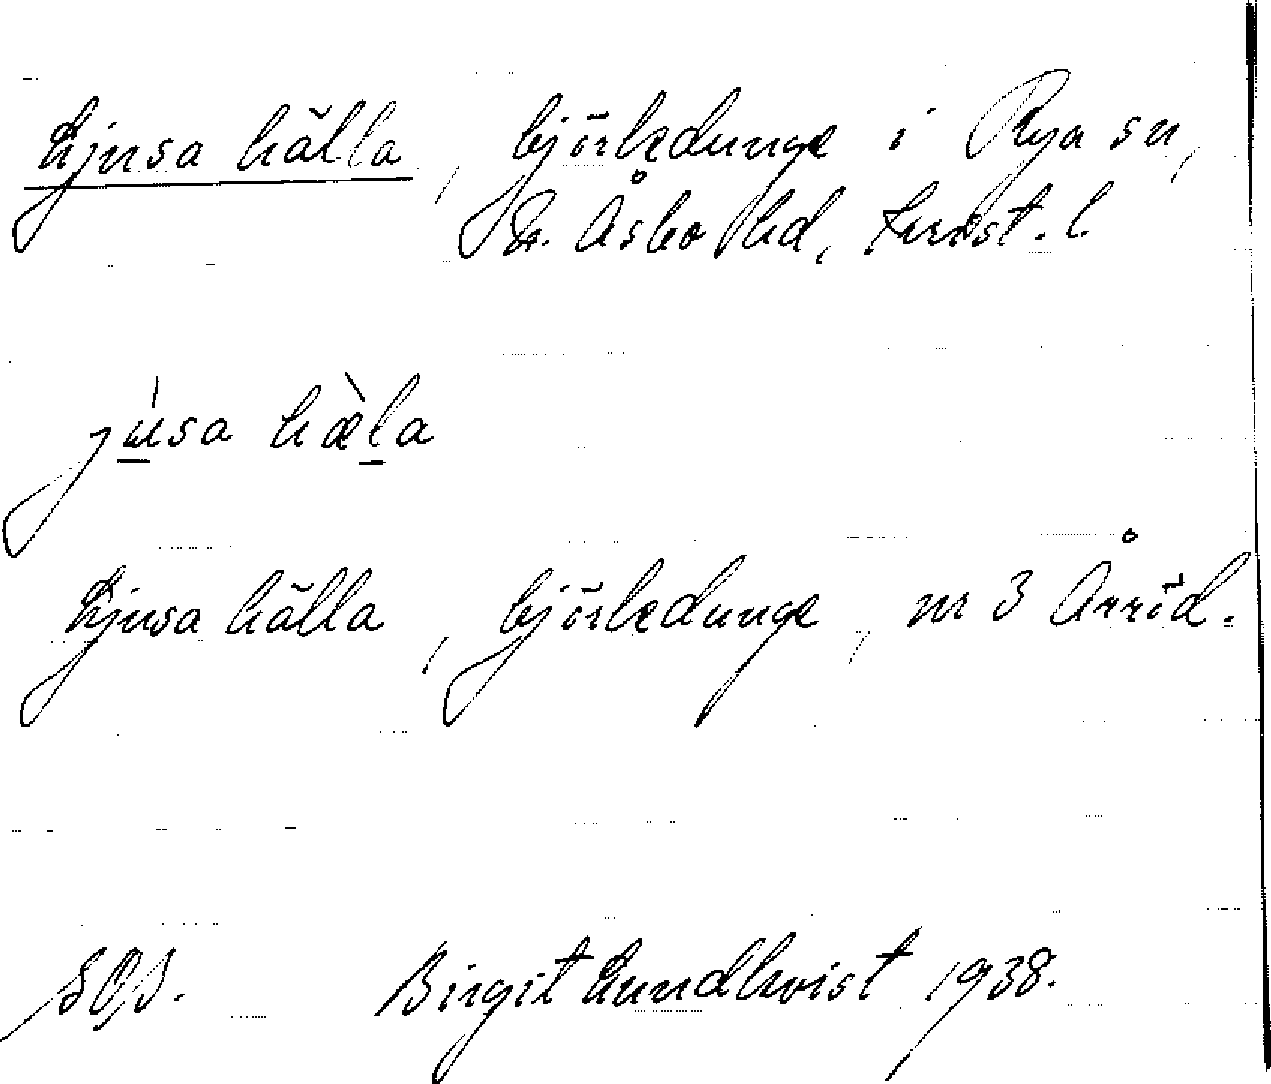 Ljusa hålla, björkdunge i Rya sn,
S. Åsbo hd, Krist. l.
júsa hæ̀la
Ljusa hålla, björkdunge, nr 3 Årröd.
SOS. Birgit Lundkvist 1938.